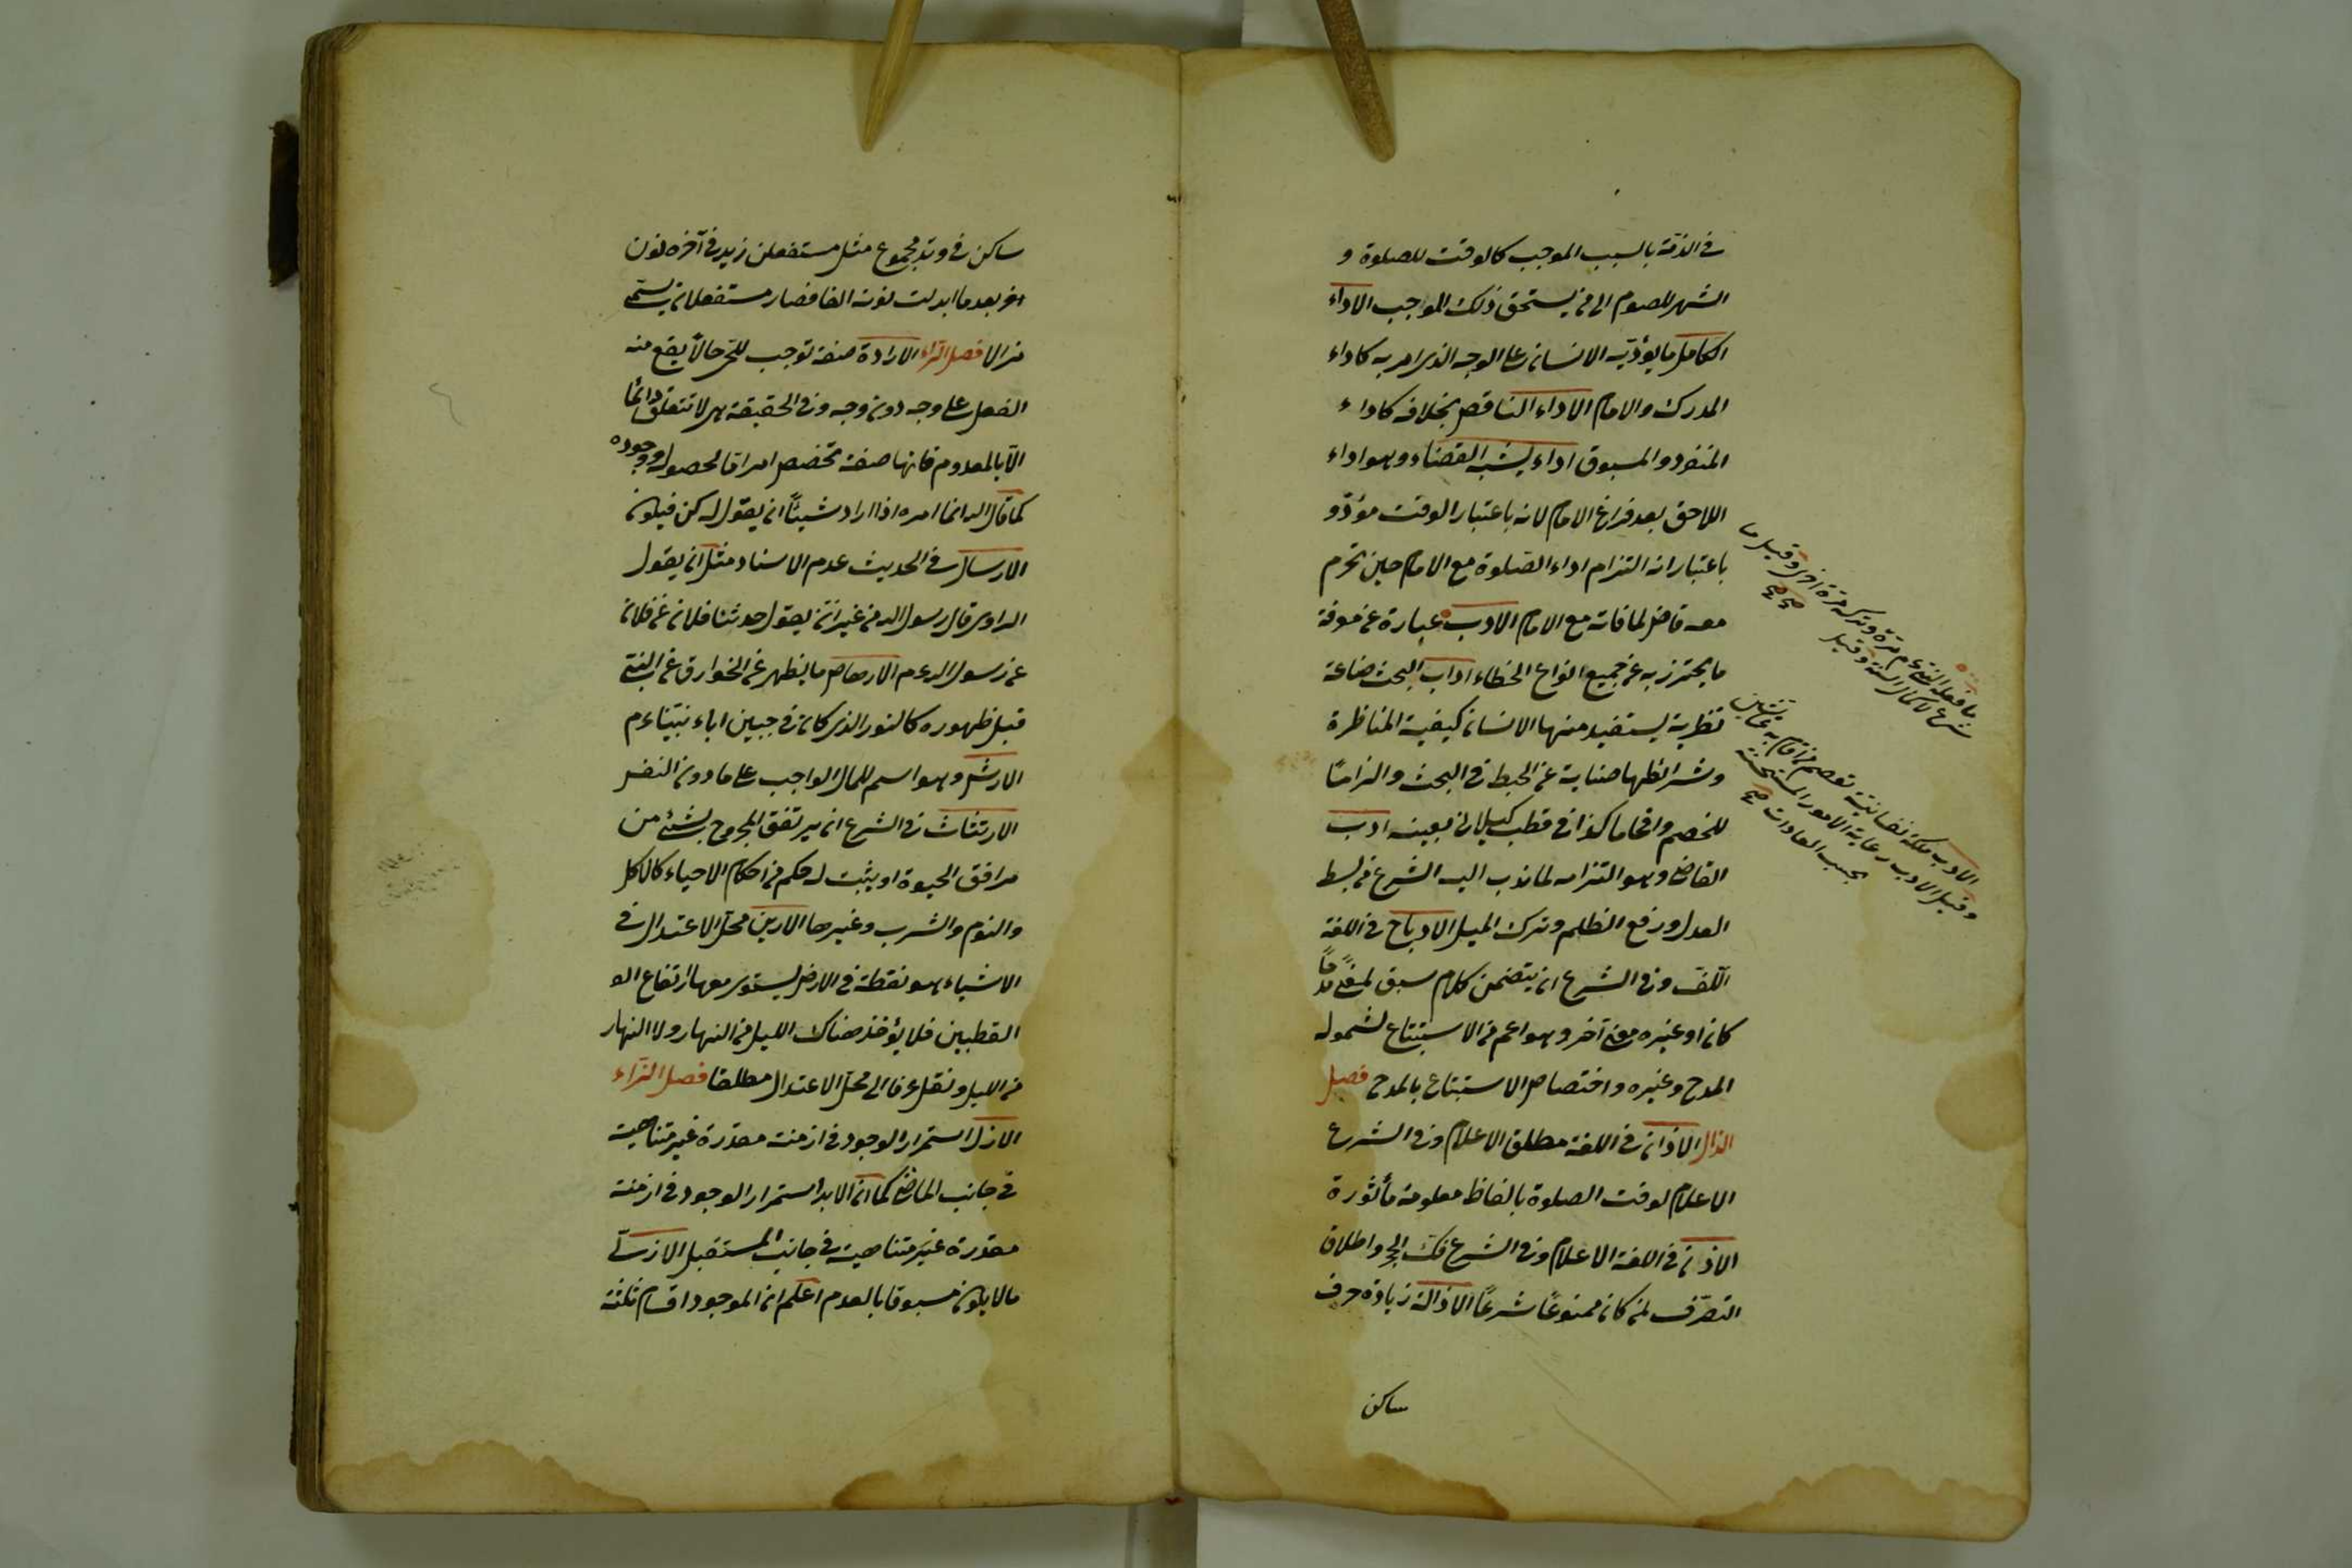 في الذمة بالسبب الموجب كالوقت للصلوة و
الشهر للصوم الى من يستحق ذلك الموجب الاداء
الكامل ما يؤديه الانسان على الوجه الذى امر به كاداء
المدرك والامام الاداء الناقص بخلافه كاداء
المنفرد والمسبوق اداء يشبه القضاء وهو اداء
اللاحق بعد فراغ الامام لانه باعتبار الوقت مؤدّ و
باعتبار انه التزام اداء الصلوة مع الامام حين تحرم
معه قاض لما فاته مع الامام الادب عبارة عن معرفة
ما يحترز به عن جميع انواع الخطاء اداب البحث صناعة
نظرية يستفيد منها الانسان كيفية المناظرة
وشرائطها صناية عن الخبط في البحث والزامًا
للخصم وافحاما كذا في قطب كيلانى بعينه ادب
القاضى وهو التزامه لما ندب اليه الشرع من بسط
العدل ورفع الظلم وترك الميل الادماج في اللغة
اللّف وفى الشرع ان يتضمن كلام سبق لمعنى مدحًا
كان او غيره معنى آخر وهو اعم من الاستتباع لشموله
المدح وغيره واختصاص الاستتباع بالمدح فصل
الذال الاذان في اللغة مطلق الاعلام وفى الشرع
الاعلام لوقت الصلوة بالفاظ معلومة مأثورة
الاذن في اللغة الاعلام وفى الشرع فك الحجر واطلاق
التصرّف لمن كان ممنوعًا شرعًا الاذالة زيادة حرف
ساكن
ما فعله النبىء م مرّة وتركه مرة اخرى وقيل ما
شرع لاكمال السنة وقيل
صح
الادب ملكة نفسانية تعصم من قام به عما يشين
وقيل الادب رعاية الامور المستحسنة
بحسب العادات صح
ساكن في وتد مجموع مثل مستفعلن زيد في آخره نون
اخر بعد ما ابدلت نونه الفا فصار مستفعلان يسمى
مذالا فصل الراء الارادة صفة توجب للحى حالاً يقع منه
الفعل على وجه دون وجه وفى الحقيقة هى لا تتعلق دائما
الّا بالمعدوم فانها صفة تخصص امرا قا لحصوله ووجوده
كما قال الله انما امره اذا اراد شيئًا ان يقول له كن فيكون
الارسال في الحديث عدم الاسناد مثل ان يقول
الراوى قال رسول الله من غير ان يقول حدثنا فلان عن فلان
عن رسول الله عم الارهاص ما يظهر عن الخوارق عن النبى
قبل ظهوره كالنور الذى كان في جبين اباء نبينا عم
الارش وهو اسم للمال الواجب على ما دون النفس
الارتثاث في الشرع ان يرتفق المجروح بشئ من
مرافق الحيوة او يثبت له حكم من احكام الاحياء كالاكل
والنوم والشرب وغيرها الارين محل الاعتدال في
الاشياء هو نقطة في الارض يستوى معها ارتفاع الو
القطبين فلا يؤخذ هناك الليل من النهار ولا النهار
من الليل ونقل عرفا الى محل الاعتدال مطلقا فصل الزاء
الازل استمرار الوجود في ازمنة مقدرة غير متناهية
في جانب الماضى كما ان الابد استمرار الوجود في ازمنة
مقدرة غير متناهية في جانب المستقبل الازلى
مالا يكون مسبوقا بالعدم اعلم ان الموجود اقسام ثلثة